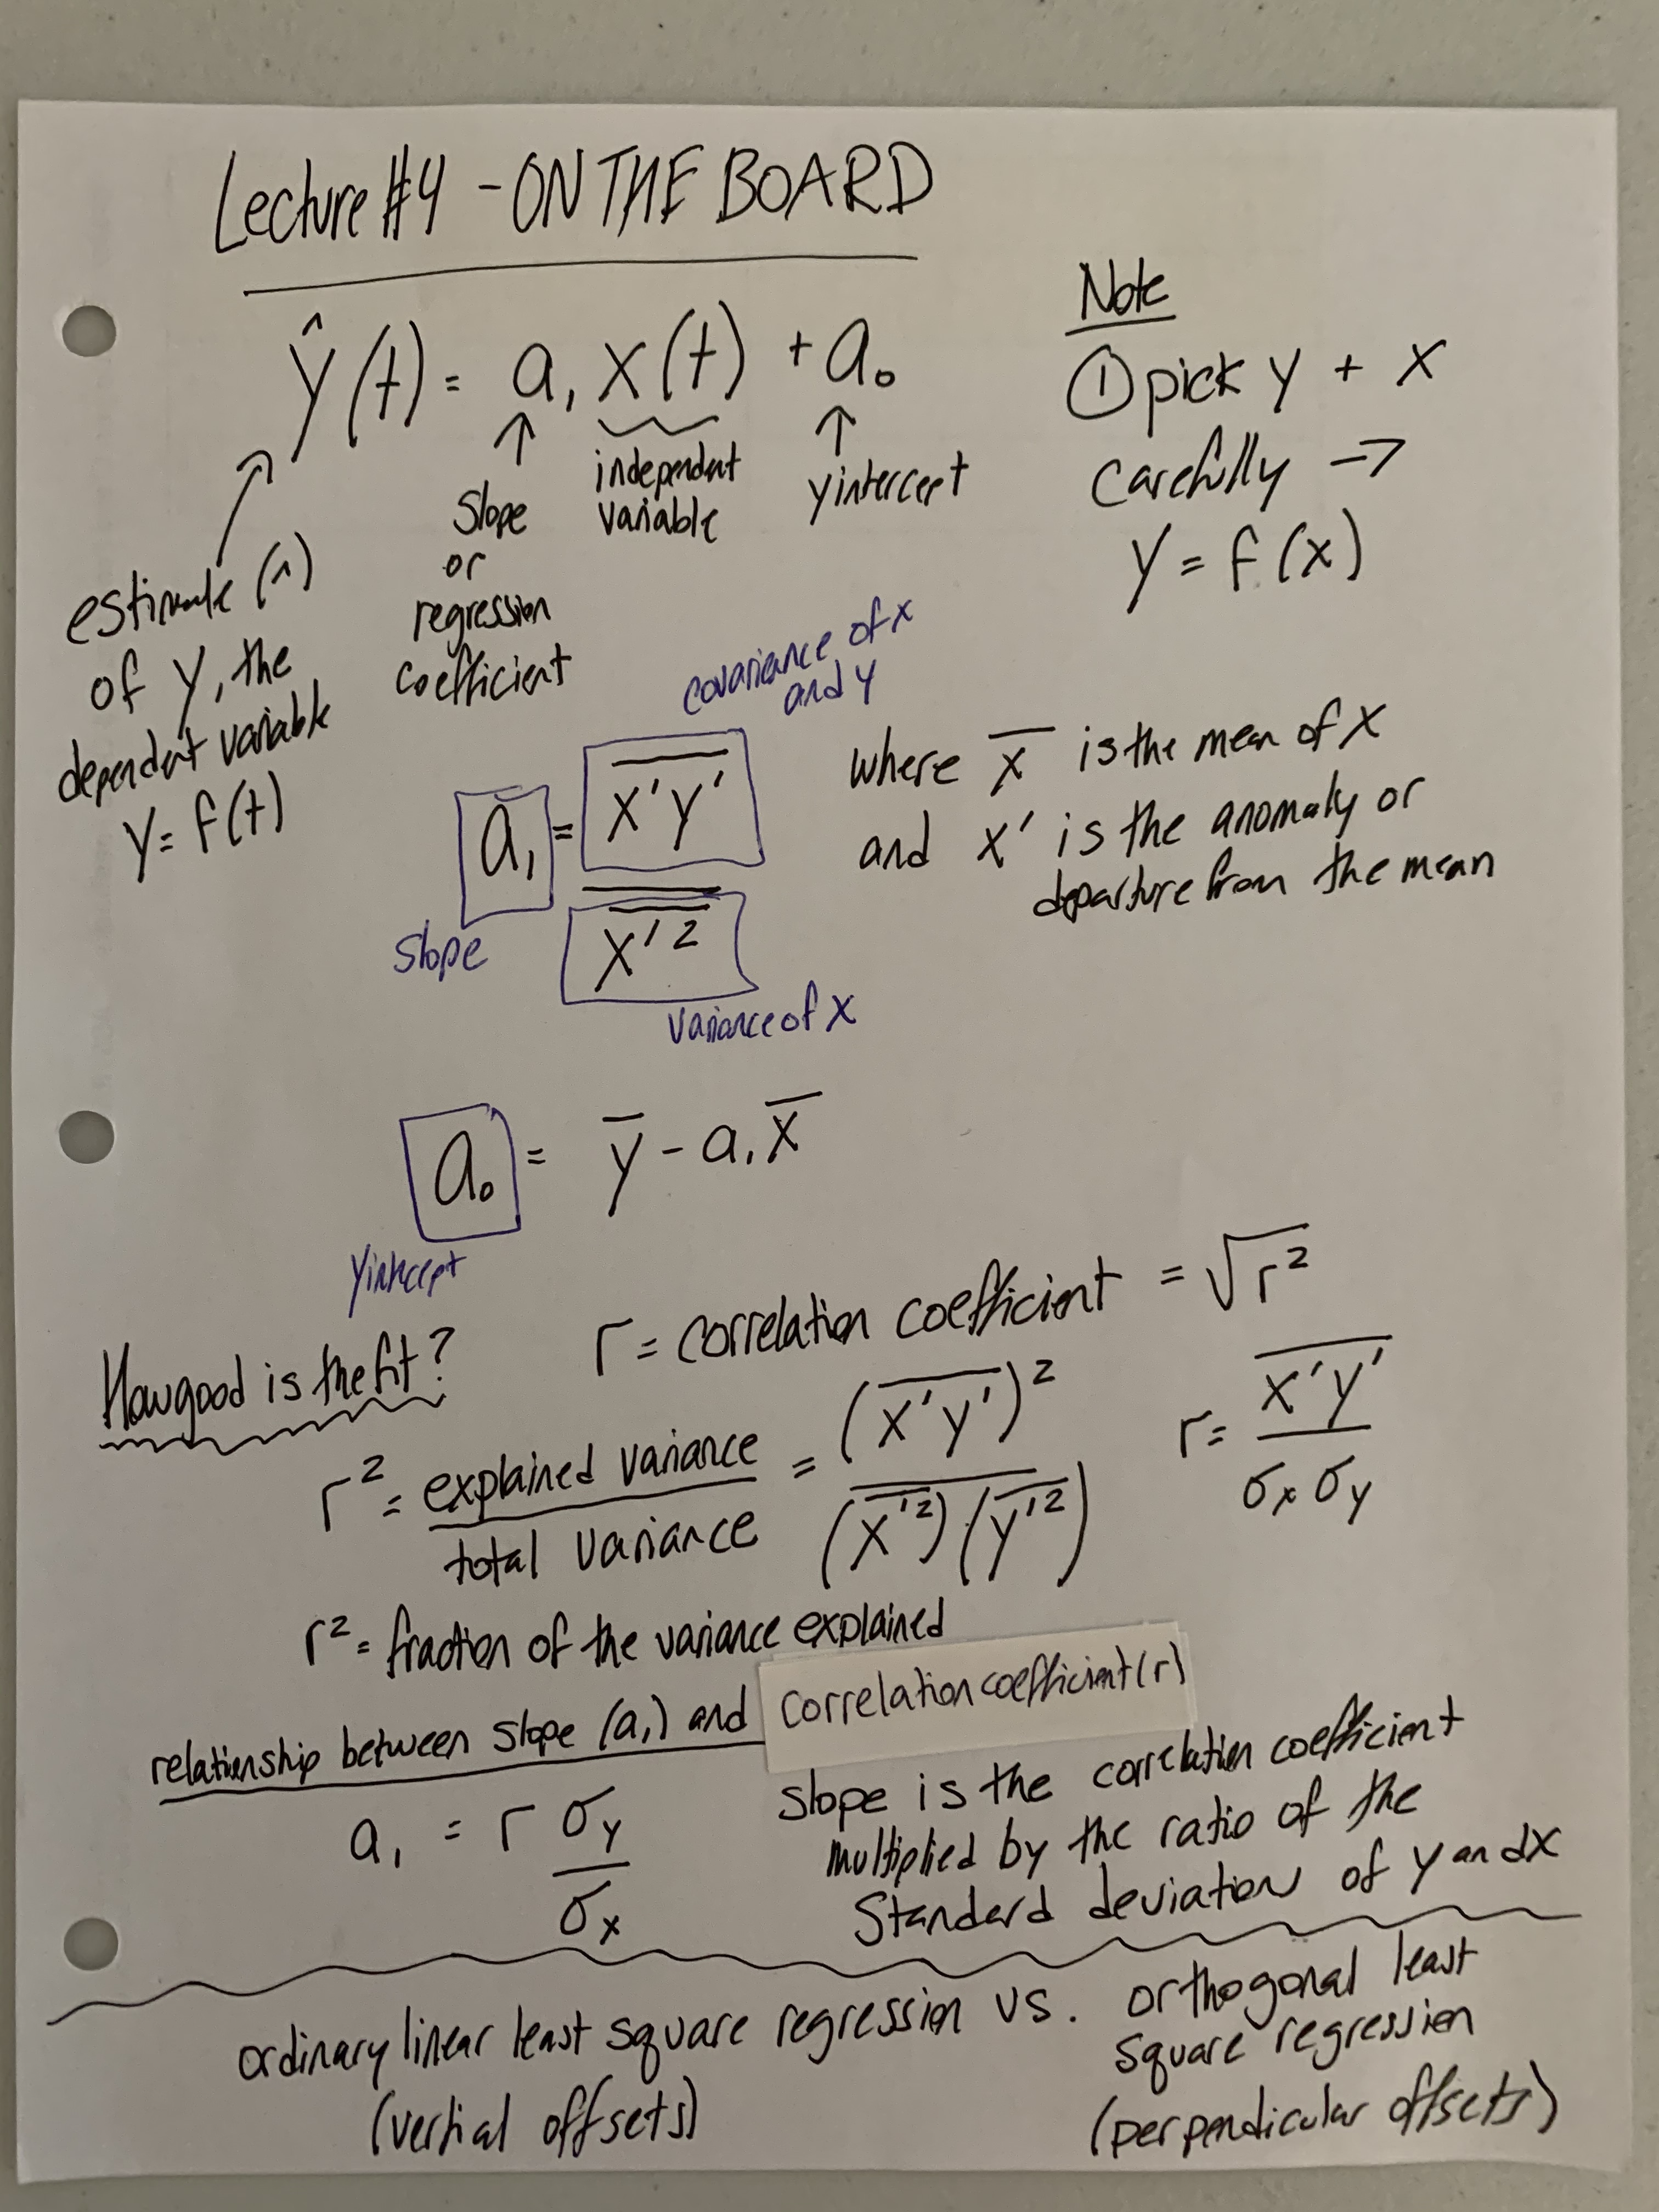 Lecture #4 - ON THE BOARD
ŷ(t) = a₁ x(t) + a₀
slope
or
regression
coefficient
independent
variable
y intercept
estimate (^)
of y, the
dependent variable
y = f(t)
Note
① pick y + x
carefully →
y = f(x)
covariance of x
and y
a₁ = x̅'̅y̅'̅ / x̅'̅²̅
slope
variance of x
where x̅ is the mean of x
and x' is the anomaly or
departure from the mean
a₀ = y̅ - a₁x̅
y intercept
How good is the fit?
r = correlation coefficient = √r²
r² = explained variance / total variance = (x̅'̅y̅'̅)² / (x̅'̅²̅)(y̅'̅²̅)
r = x̅'̅y̅'̅ / σx σy
r² = fraction of the variance explained
relationship between slope (a₁) and correlation coefficient (r)
a₁ = r σy / σx
slope is the correlation coefficient
multiplied by the ratio of the
standard deviation of y and x
ordinary linear least square regression vs. orthogonal least
square regression
(vertial offsets)
(perpendicular offsets)